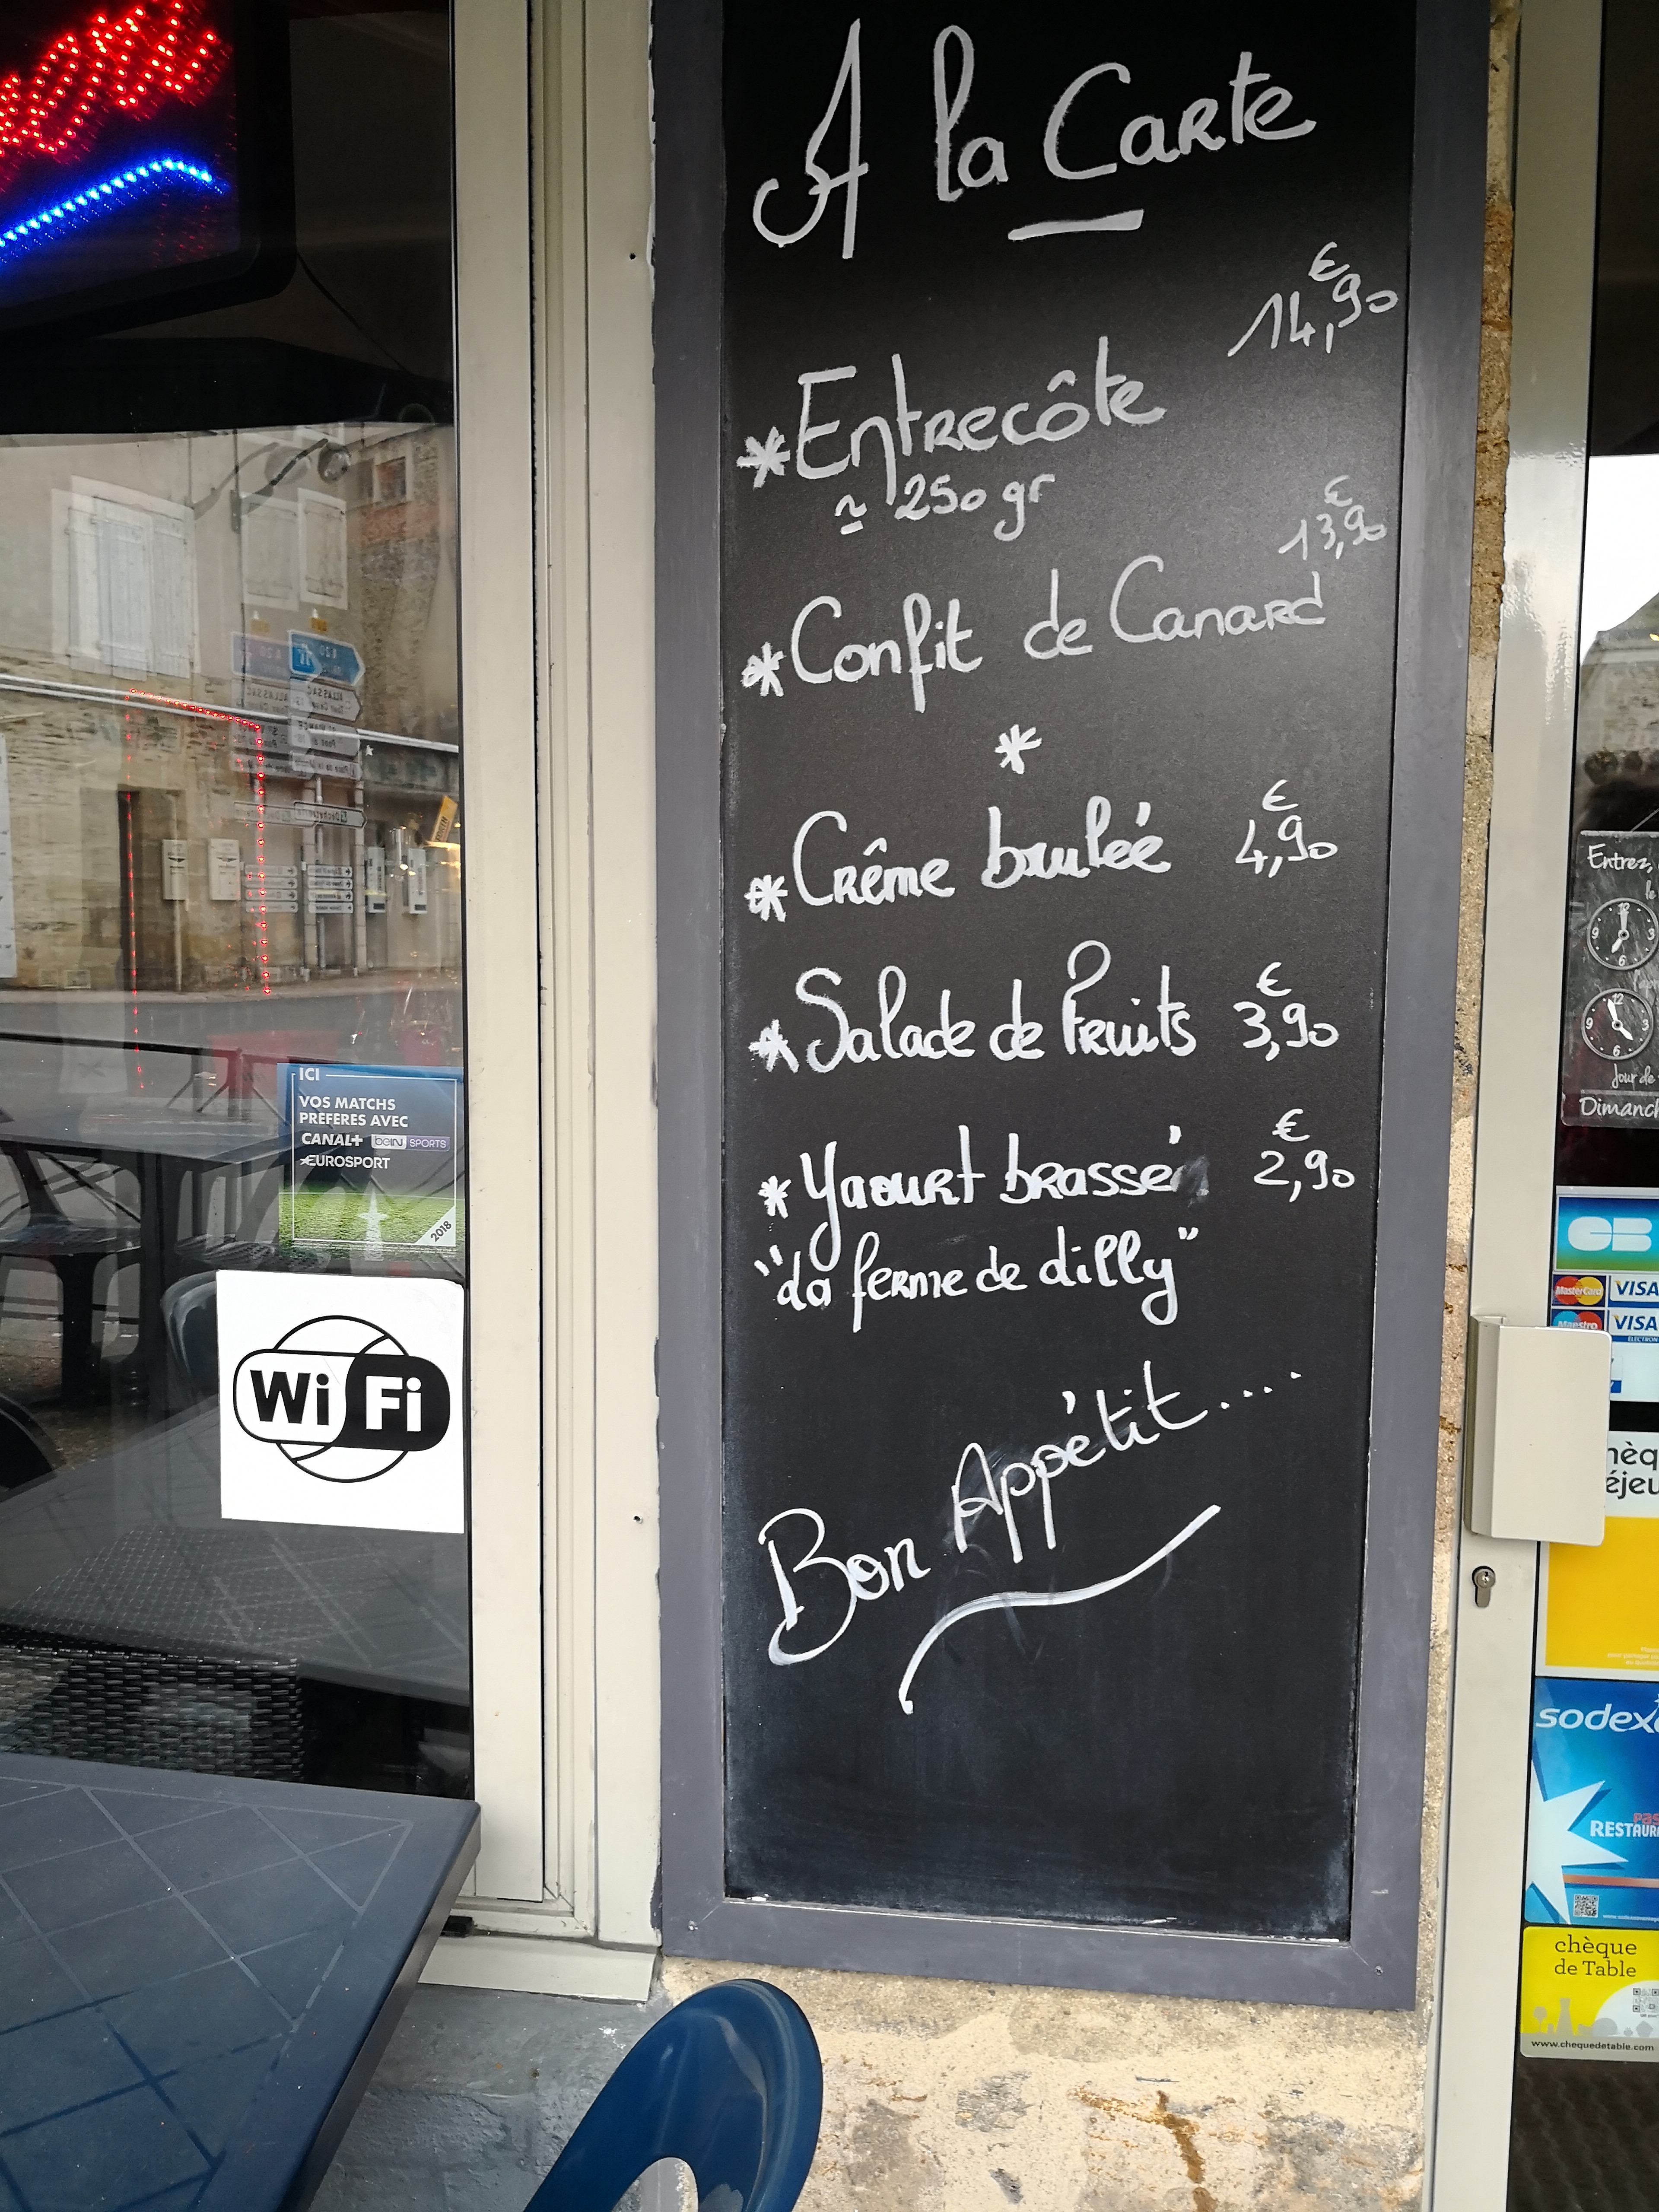 A la Carte
€
14,90
*Entrecôte
≃ 250 gr
€
13,90
*Confit de Canard
*
€
*Crême brulée 4,90
€
*Salade de Fruits 3,90
€
*Yaourt brassé 2,90
"la ferme de dilly"
Bon Appétit....
ICI
VOS MATCHS
PREFERES AVEC
CANAL+ beIN SPORTS
EUROSPORT
2018
Wi Fi
Entrez,
le
12
9 3
6
12
9 3
6
Jour de
Dimanch
CB
MasterCard VISA
Maestro VISA
ELECTRON
hèq
éjeu
sodexo
pas
RESTAUR
chèque
de Table
www.chequedetable.com